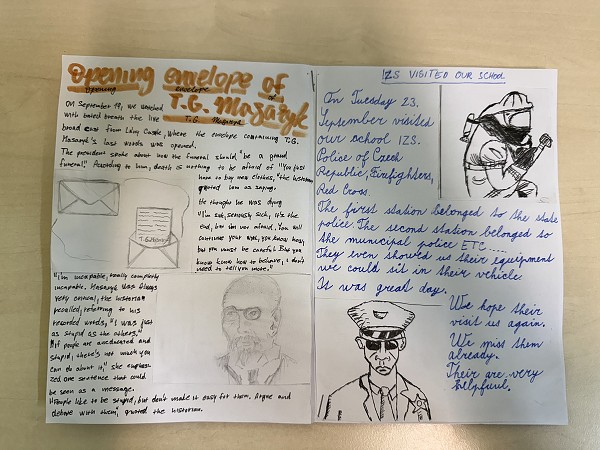 Opening envelope of
Opening envelope of
T.G. Masaryk
T.G. Masaryk
On September 19, we watched
with bated breath the live
broad cast from Lány Castle, where the envelope containing T.G.
Masaryk's last words was opened.
The president spoke about how the funeral should "be a grand
funeral". According to him, death is nothing to be afraid of "You just
have to buy new clothes," the historian
quoted him as saying.
He thought he was dying
"I'm sick, seriously sick, it's the
end, but I'm not afraid. You will
continue your work, you know how,
but you must be careful. But you
know know how to behave, I don't
need to tell you more."
T.G. Masaryk
"I'm incapable, totally completly
incapable. Masaryk was always
very critical, the historian
recalled, referring to his
recorded words, "I was just
as stupid as the others."
"If people are uneducated and
stupid, there's not much you
can do about it," she
zed one sentence that could
be seen as a message.
"People like to be stupid, but don't make it easy for them. Argue and
debate with them," quoted the historian.
IZS VISITED OUR SCHOOL
On Tuesday 23.
September visited
our school IZS.
Police of Czech
Republic, Firefighters,
Red Cross.
The first station belonged to the state
police. The second station belonged to
the municipal police ETC...
They even showed us their equipment
we could sit in their vehicle.
It was great day.
We hope their
visit us again.
We miss them
already.
Their are very
helpfuul.